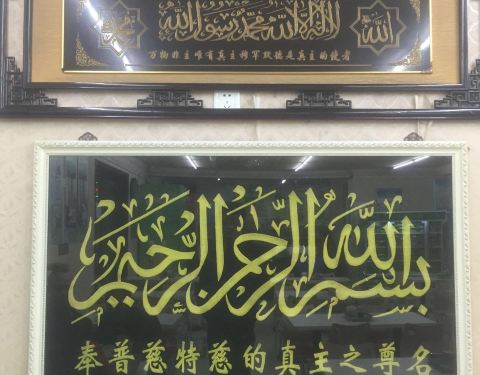 الله لا إله إلا الله محمد رسول الله محمد
万物非主唯有真主穆罕默德是真主的使者
بسم الله الرحمن الرحيم
奉普慈特慈的真主之尊名